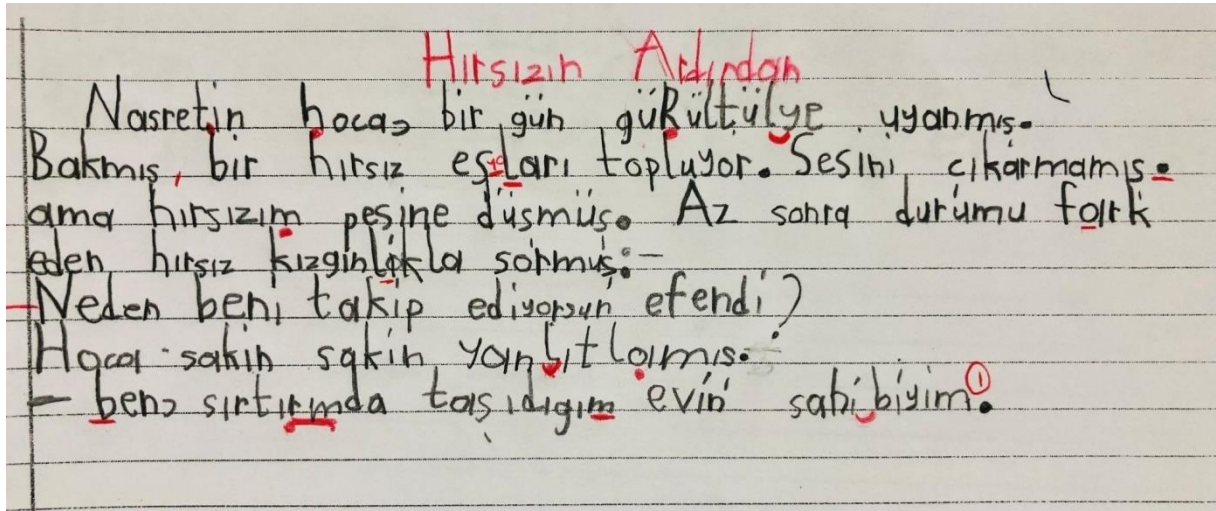 Hırsızın Ardından
Nasretin hoca, bir gün güKültülye uyanmış.
Bakmış, bir hırsız eşyaları topluyor. Sesini çıkarmamış.
ama hırsızım peşine düşmüş. Az sonra durumu fark
eden hırsız kızgınlıkla sormuş:-
-Neden beni takip ediyorsun efendi?
Hoca sakin sakin yanbıtlamış.
- ben, sırtırmda taşıdıgım evin sahibiyim.